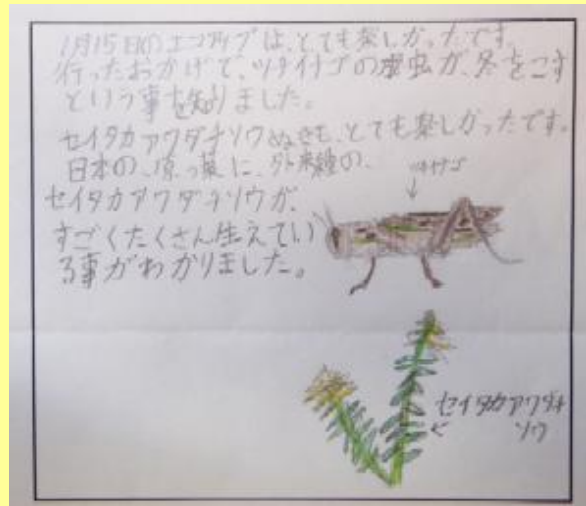 1月15日のエコアップは、とても楽しかったです。
行ったおかげで、ツチイナゴの虫が、冬をこす
という事を知りました。
セイタカアワダチソウぬきも、とても楽しかったです。
日本の、原っぱに、外来種の、
セイタカアワダチソウが、
すごくたくさん生えてい
る事がわかりました。
セイタカアワダチ
ソウ